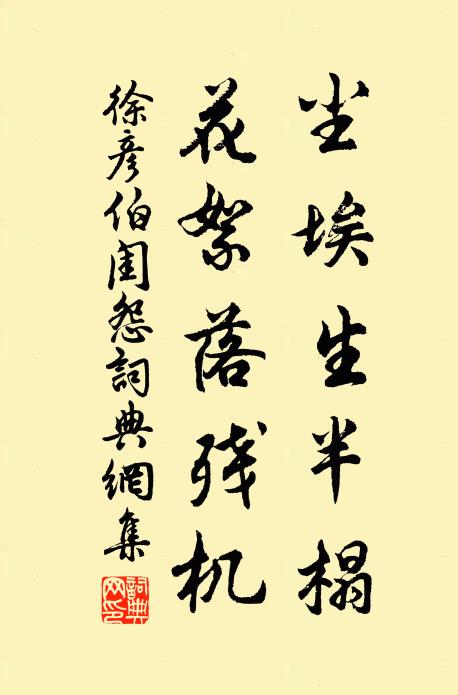 尘埃生半榻
花絮落残机
徐彦伯闺怨詞典網集
詞典网印